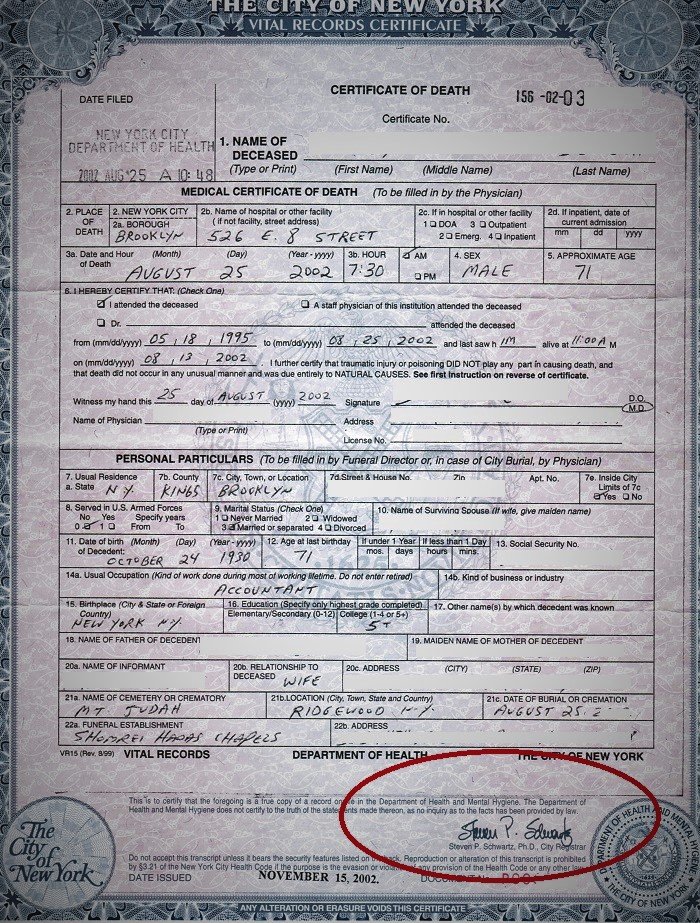 THE CITY OF NEW YORK
VITAL RECORDS CERTIFICATE
DATE FILED
CERTIFICATE OF DEATH
156 -02-03
Certificate No.
NEW YORK CITY
DEPARTMENT OF HEALTH
2002 AUG 25 A 10:48
1. NAME OF DECEASED
(Type or Print) (First Name) (Middle Name) (Last Name)
MEDICAL CERTIFICATE OF DEATH (To be filled in by the Physician)
2. PLACE OF DEATH
2. NEW YORK CITY
2a. BOROUGH
BROOKLYN
2b. Name of hospital or other facility
( if not facility, street address)
526 E. 8 STREET
2c. If in hospital or other facility
1 DOA 3 Outpatient
2 Emerg. 4 Inpatient
2d. If inpatient, date of
current admission
mm dd yyyy
3a. Date and Hour of Death
(Month) (Day) (Year - yyyy)
AUGUST 25 2002
3b. HOUR
7:30
AM
PM
4. SEX
MALE
5. APPROXIMATE AGE
71
6. I HEREBY CERTIFY THAT: (Check One)
I attended the deceased A staff physician of this institution attended the deceased
Dr. attended the deceased
from (mm/dd/yyyy) 05 , 18 , 1995 to (mm/dd/yyyy) 08 , 25 , 2002 and last saw h IM alive at 11:00A M
on (mm/dd/yyyy) 08 , 13 , 2002 . I further certify that traumatic injury or poisoning DID NOT play any part in causing death, and
that death did not occur in any unusual manner and was due entirely to NATURAL CAUSES. See first Instruction on reverse of certificate.
Witness my hand this 25 day of AUGUST (yyyy) 2002 Signature D.O.
M.D.
Name of Physician Address
(Type or Print)
License No.
PERSONAL PARTICULARS (To be filled in by Funeral Director or, in case of City Burial, by Physician)
7. Usual Residence
a. State N Y.
7b. County
KINGS
7c. City, Town, or Location
BROOKLYN
7d. Street & House No. Zip Apt. No.
7e. Inside City
Limits of 7c
Yes No
8. Served in U.S. Armed Forces
No Yes Specify years
0 1 From To
9. Marital Status (Check One)
1 Never Married 2 Widowed
3 Married or separated 4 Divorced
10. Name of Surviving Spouse (If wife, give maiden name)
11. Date of Birth (Month) (Day) (Year - yyyy)
of Decedent:
OCTOBER 24 1930
12. Age at last birthday
71
If under 1 Year If less than 1 Day
mos. days hours mins.
13. Social Security No.
14a. Usual Occupation (Kind of work done during most of working lifetime. Do not enter retired)
ACCOUNTANT
14b. Kind of business or industry
15. Birthplace (City & State or Foreign
Country)
NEW YORK N.Y.
16. Education (Specify only highest grade completed)
Elementary/Secondary (0-12) College (1-4 or 5+)
5+
17. Other name(s) by which decedent was known
18. NAME OF FATHER OF DECEDENT
19. MAIDEN NAME OF MOTHER OF DECEDENT
20a. NAME OF INFORMANT
20b. RELATIONSHIP TO
DECEASED
WIFE
20c. ADDRESS (CITY) (STATE) (ZIP)
21a. NAME OF CEMETERY OR CREMATORY
MT JUDAH
21b. LOCATION (City, Town, State and Country)
RIDGEWOOD N.Y.
21c. DATE OF BURIAL OR CREMATION
AUGUST 25
22a. FUNERAL ESTABLISHMENT
SHOMREI HADAS CHAPELS
22b. ADDRESS
VR15 (Rev. 8/99) VITAL RECORDS DEPARTMENT OF HEALTH THE CITY OF NEW YORK
This is to certify that the foregoing is a true copy of a record on file in the Department of Health and Mental Hygiene. The Department of
Health and Mental Hygiene does not certify to the truth of the statements made thereon, as no inquiry as to the facts has been provided by law.
Steven P. Schwartz
Steven P. Schwartz, Ph.D., City Registrar
Do not accept this transcript unless it bears the security features listed on the back. Reproduction or alteration of this transcript is prohibited
by §3.21 of the New York City Health Code if the purpose is the evasion or violation of any provision of the Health Code or any other law.
DATE ISSUED NOVEMBER 15, 2002.
The
City
of
New York
DEPARTMENT OF HEALTH AND MENTAL
ANY ALTERATION OR ERASURE VOIDS THIS CERTIFICATE